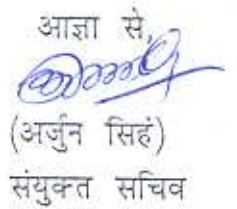 आज्ञा से,
(अर्जुन सिहं)
संयुक्त सचिव